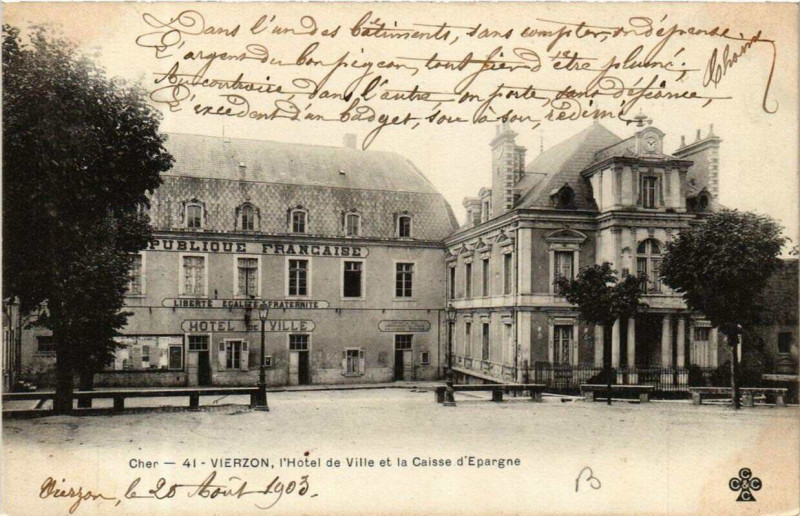 Dans l'un des bâtiments, sans compter, on dépense
L'argent du bon pigeon, tout fier d'être plumé;
Au contraire, dans l'autre on porte, sans défiance,
L'excédent d'un budget, sou à sou, rédimé.
RÉPUBLIQUE FRANÇAISE
LIBERTÉ EGALITÉ FRATERNITÉ
HOTEL DE VILLE
Cher — 41 - VIERZON, l'Hotel de Ville et la Caisse d'Epargne
Vierzon, le 20 Août 1903.
B
C C C C